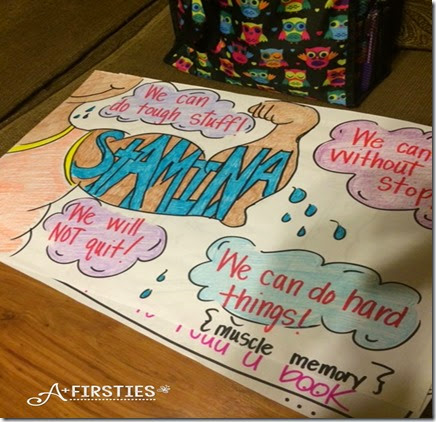 We can
do tough stuff!
STAMINA
We can
without
stop
We will
NOT quit!
We can do hard
things!
{ muscle memory }
book
A+ FIRSTIES